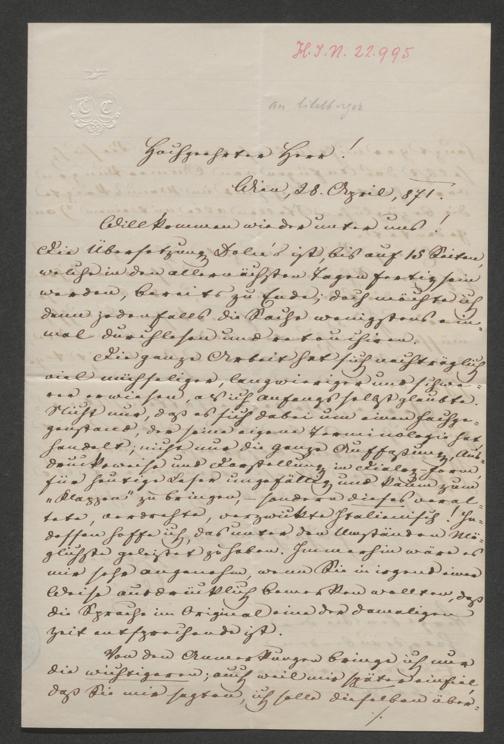 H.I.N. 22.995
an Eitelberger
Hochgeehrter Herr!
Wien, 28. April, 871.
Willkommen wieder unter uns!
Die Übersetzung Dolce's ist, bis auf 15 Seiten,
welche in den allernächsten Tagen fertig sein
werden, bereits zu Ende; doch möchte ich
dann jedenfalls die Sache wenigstens ein-
mal durchlesen und retouchiren.
Die ganze Arbeit hat sich nachträglich
viel mühseliger, langwieriger und schwie-
riger erwiesen, als ich anfangs selbst glaubte.
Nicht nur, daß es sich dabei um einen Fachge-
genstand, der seine eigene Terminologie hat,
handelt; nicht nur die ganze Auffassung, Aus-
drucksweise und Darstellung in Dialog-Form,
für heutige Leser ungefällig und kaum zum
"Klappen" zu bringen, – sondern dieses veral-
tete, verdrehte, verzwickte Italienisch! In-
dessen hoffe ich, das unter den Umständen Mö-
glichste geleistet zu haben. Immerhin wäre es
mir sehr angenehm, wenn Sie in irgend einer
Weise ausdrücklich bemerken wollten, daß
die Sprache im Original eine der damaligen
Zeit entsprechende ist.
Von den Anmerkungen bringe ich nur
die wichtigeren; auch weil mir später einfiel,
daß Sie mir sagten, ich solle dieselben über-